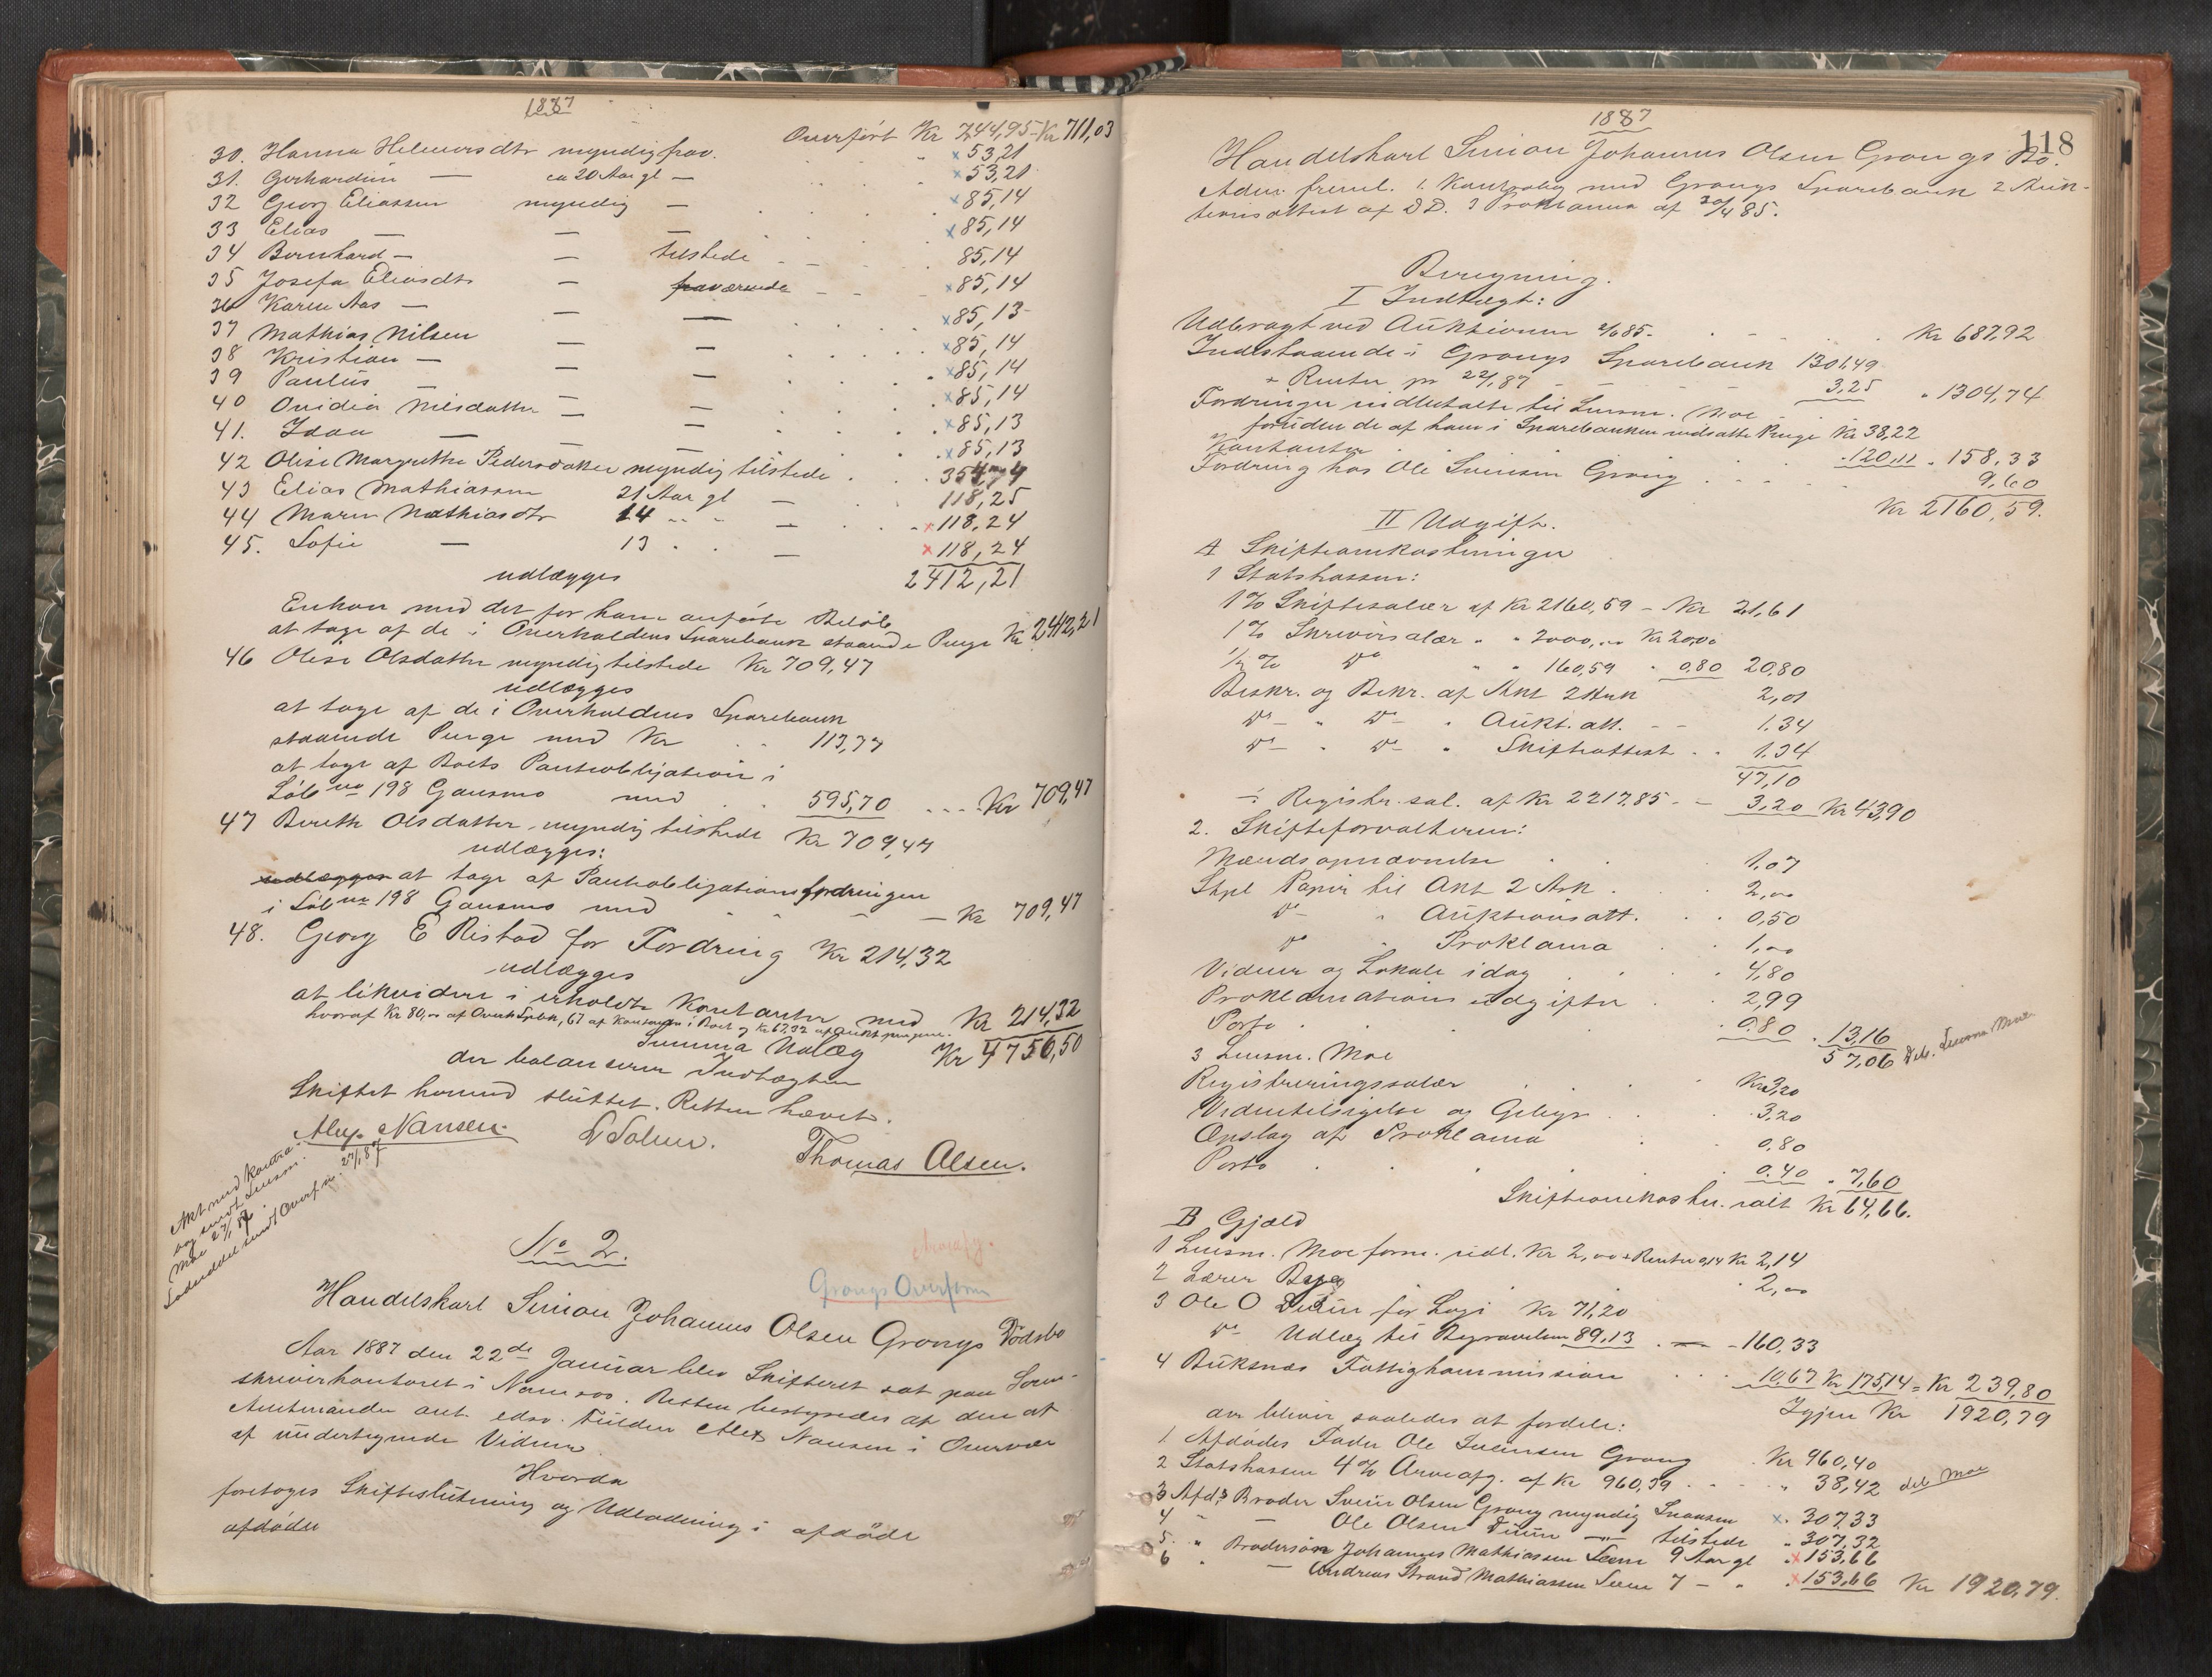 1887
Overført Kr 744,95 - Kr 711,03
30. Hanna Helmersdtr myndig frav. × 53,21
31. Gerhardine — ca 20 Aar gl — × 53,21
32 Georg Eliassen myndig — × 85,14
33 Elias — — — × 85,14
34 Bernhard — — tilstede 85,14
35 Josefa Eliasdtr — fraværende × 85,14
36 Karen Aas — — — × 85,13
37 Mathias Nilsen — — × 85,14
38 Kristian — — — × 85,14
39 Paulus — — — × 85,14
40 Ovidia Nilsdatter — — × 85,13
41. Idau — — × 85,13
42 Olise Margrethe Pedersdatter myndig tilstede 354,74
43 Elias Mathiassen 21 Aar gl — 118,25
44 Maren Mathiasdtr 14 " " — × 118,24
45. Sofie — 13 " " — × 118,24
udlægges 2412,21
Enhver med det for ham anførte Beløb
at tage af de i Overhaldens Sparebank staaende Penge Kr 2412,21
46 Olise Olsdatter myndig tilstede Kr 709,47
udlægges
at tage af de i Overhaldens Sparebank
staaende Penge med Kr 113,77
at tage af Boets Pantobligation i
Løb no 198 Gansmo med 595,70 Kr 709,47
47 Bereth Olsdatter myndig tilstede Kr 709,47
udlægges:
udlægges at tage af Pantobligationsfordringen
i Løb no 198 Gansmo med — Kr 709,47
48. Georg E Ristad for Fordring Kr 214,32
udlægges
at likvidere i erholdte Kontanter med Kr 214,32
hvoraf Kr 80,00 af Overh Spbk, 67 af Kontanter i Boet og Kr 67,32 af Auktpengene.
Summa Udlæg Kr 4756,50
der balanserer Indtægten
Skiftet hermed sluttet. Retten hævet.
Alex. Nansen. Thomas Olsen.
Akt med Kontra
bog sendt Lensm.
Moe 27/1 87.
Loddeddel sendt Overfm. 27/1 87
No 2.
Arveafg.
Grongs Overform
Handelskarl Simon Johannes Olsen Grongs Dødsbo
Aar 1887 den 22de Januar blev Skifteret sat paa Soren-
skriverkontoret i Namsos. Retten bestyredes af den at
Amtmanden ant. edsv. Fuldm Alex Nansen i Overvær
af undertegnede Vidner
Hvorda
foretoges Skifteslutning og Udlodning i afdøde
afdøde
1887
118
Handelskarl Simon Johannes Olsen Grongs Bo.
Adm. freml. 1. Kontrabog med Grongs Sparebank 2 Auk-
tionsattest af D D. 3 Proklama af 20/4 85.
Beregning.
I Indtægt:
Udbragt ved Auktionen 2/6 85. Kr 687,92
Indestaaende i Grongs Sparebank 1301,49
+ Renter pr 22/1 87 3,25 " 1304,74
Fordringer indbetalte til Lensm. Moe
foruden de af ham i Sparebanken indsatte Penge Kr 38,22
Kontanter 120,11 " 158,33
Fordring hos Ole Svensen Grong 9,60
Kr 2160,59.
II Udgift.
A Skifteomkostninger
1 Statskassen:
1% Skiftesalær af Kr 2160,59 - Kr 21,61
1% Skriversalær " " 2000,00 Kr 20,00
1/2 % Do " " 160,59 " 0,80 20,80
Beskr. og Bekr. af Akt 2 Ark 2,01
Do — " Do — " Aukt. att. 1,34
Do — " Do — " Skifteattest 1,34
47,10
÷ Registr. sal. af Kr 2217,85 - 3,20 Kr 43,90
2. Skifteforvalteren:
Mændsopnævnelse 1,07
Stpl Papir til Akt 2 Ark 2,00
Do " Auktionsatt. 0,50
Do " Proklama 1,00
Vidner og Lokale idag 4,80
Proklamationsudgifter 2,99
Porto 0,80 " 13,16
57,06 Del. Lensm Moe
3 Lensm. Moe
Registreringssalær Kr 3,20
Vidnetilsigelse og Gebyr 3,20
Opslag af Proklama 0,80
Porto 0,40 " 7,60
Skifteomkostn. ialt Kr 64,66.
B Gjæld
1 Lensm. Moe form. udl. Kr 2,00 + Renter 0,14 Kr 2,14
2 Lærer 2,00
3 Ole O Duun for Logi Kr 71,20
Do Udlæg til Begravelsen 89,13 — 160,33
4 Buksnæs Fattigkommission 10,67 Kr 175,14 = Kr 239,80
Igjen Kr 1920,79
der bliver saaledes at fordele:
1 Afdødes Fader Ole Svensen Grong Kr 960,40
2 Statskassen 4% Arveafg. af Kr 960,39 " 38,42 del Moe
3 Afdøs Broder Svein Olsen Grong myndig Snaasen × 307,33
4 — — Ole Olsen Duun — tilstede " 307,32
5. " Brodersøn Johannes Mathiassen Seem 9 Aar gl × 153,66
6 " — Andreas Strand Mathiassen Seem 7 — " × 153,66 Kr 1920,79.